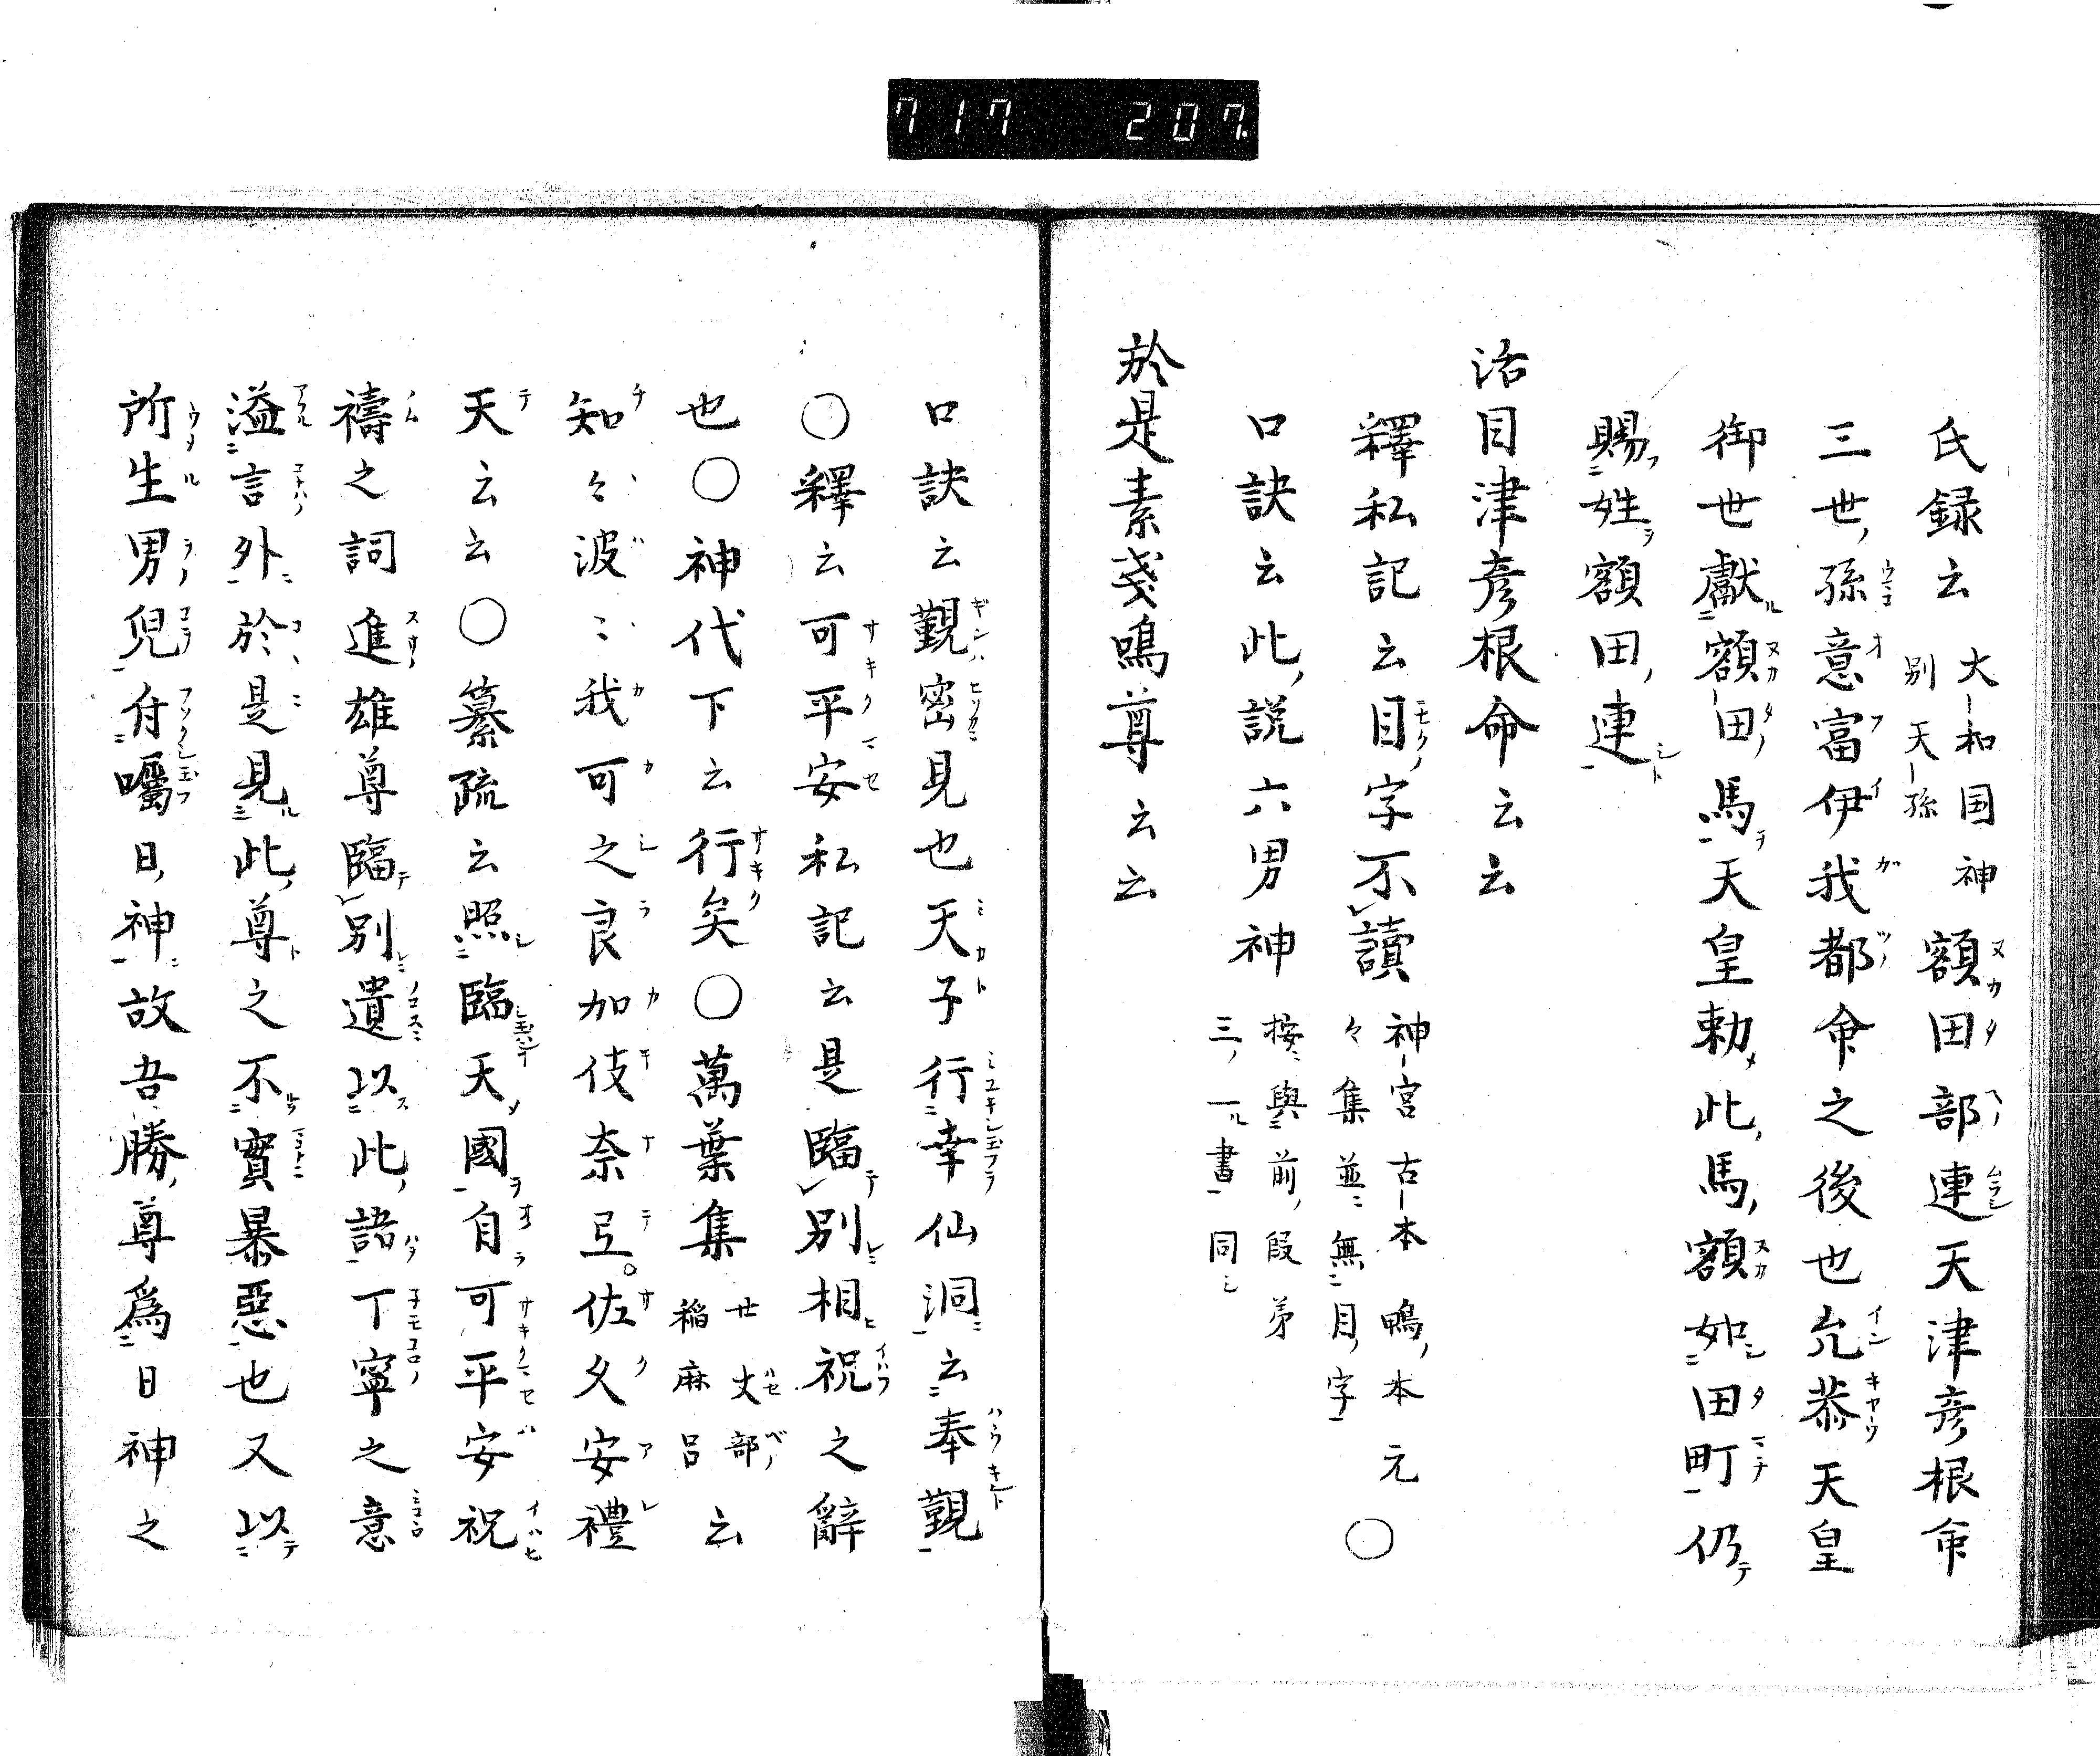 717 207.
氏録云 大和国神 別天孫 額田部連天津彦根命
三世孫意富伊我都命之後也允恭天皇
御世獻額田馬天皇勅此馬額如田町仍
賜姓額田連
活目津彦根命云云
釋私記云目字不讀 神宮古本鴨本元 々集並無目字 ○
口訣云此說六男神 按與前段弟 三一書同シ
於是素戔鳴尊云云
口訣云覲密見也天子行幸仙洞云奉覲
○釋云可平安私記云是臨別相祝之辭
也○神代下云行矣○萬葉集 廿丈部 稲麻呂 云
知々波〻我可之良加伎奈弖。佐久安禮
天云云○纂疏云照臨天國自可平安祝
禱之詞進雄尊臨別遺以此諸丁寧之意
溢言外於是見此尊之不實暴惡也又以
所生男兒付囑日神故吾勝尊爲日神之